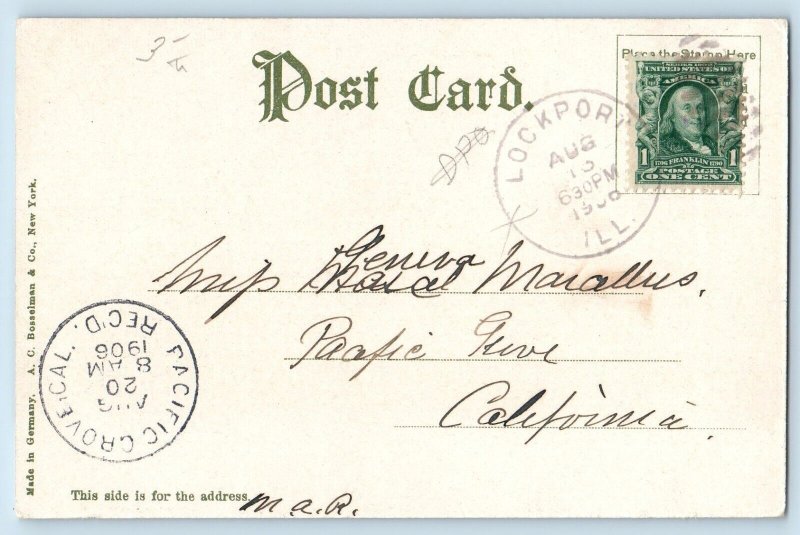 Post Card.
Place the Stamp Here
SERIES 1902
UNITED STATES OF
AMERICA
1 1706 FRANKLIN 1790 1
POSTAGE
ONE CENT
LOCKPORT
AUG
13
630PM
1906
ILL.
DPO
Miss Geneva
Marallus.
Pacific Grove
California.
PACIFIC GROVE, CAL. REC'D.
AUG
20
8 AM
1906
Made in Germany. A. C. Bosselman & Co., New York.
This side is for the address.
M.A.R.